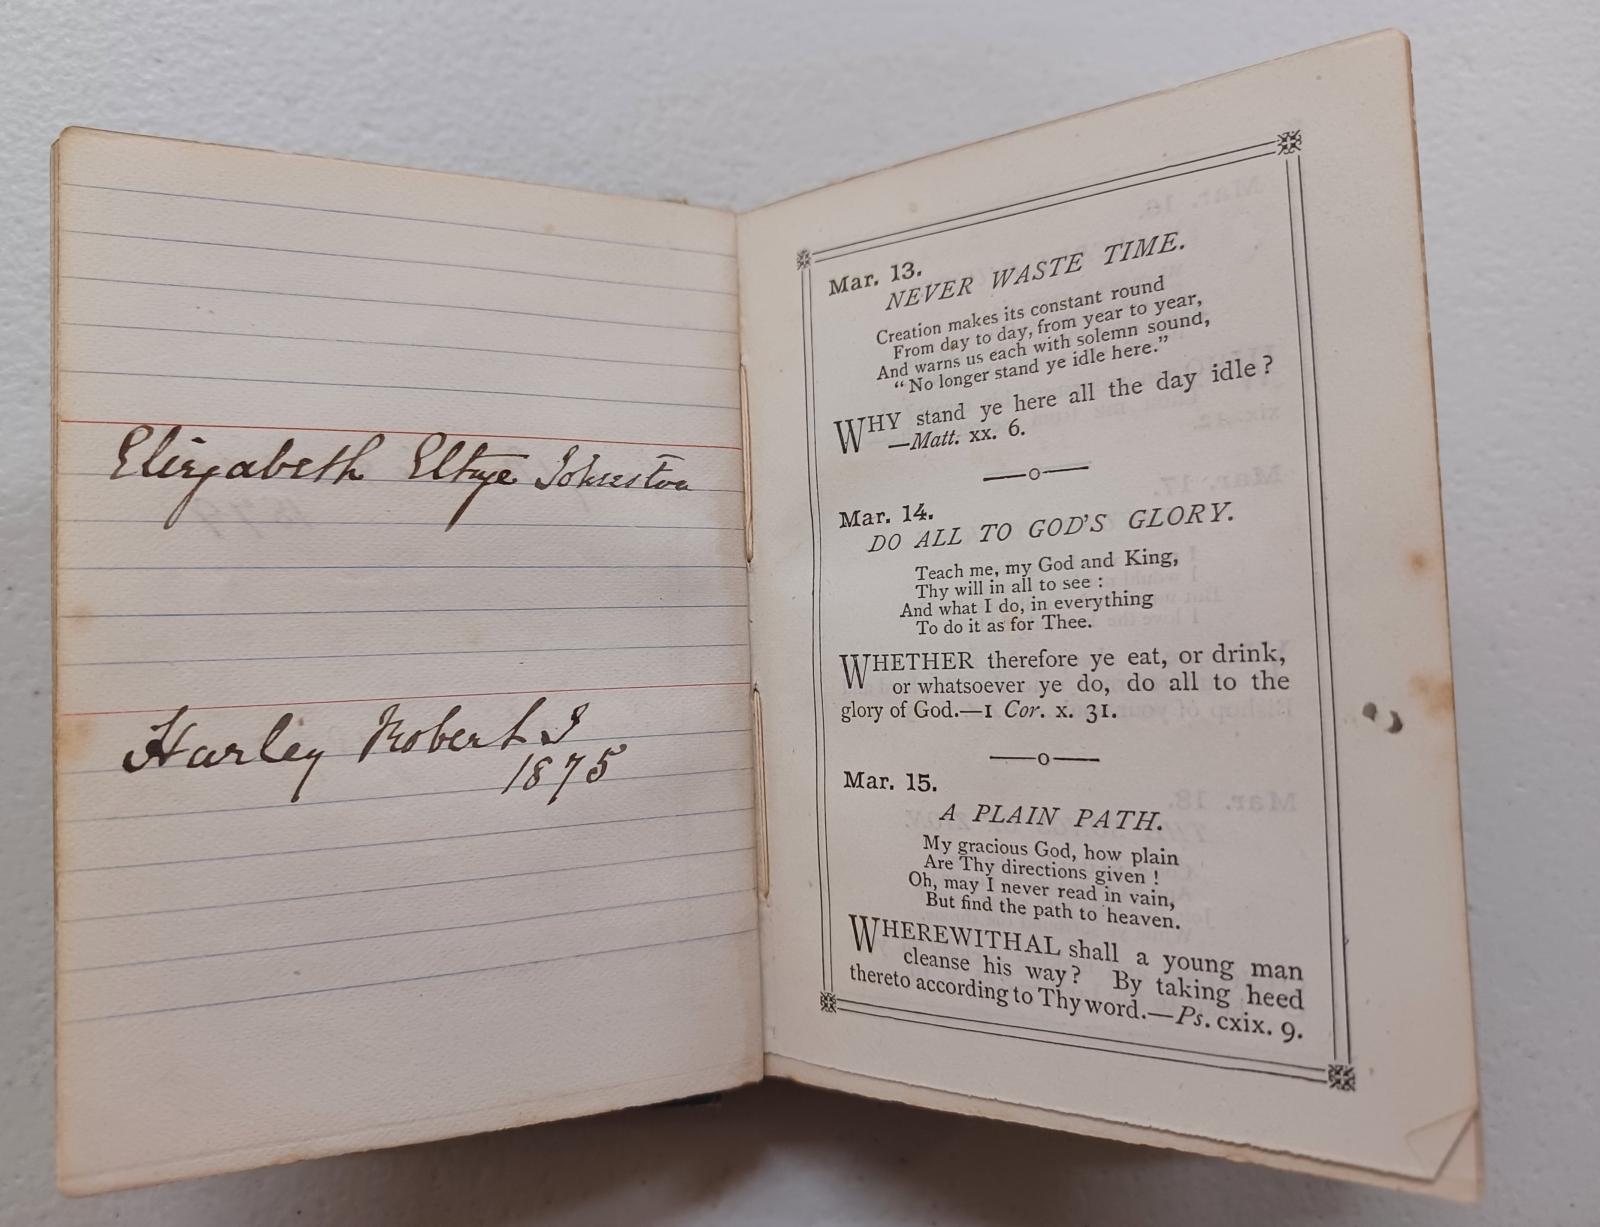 Elizabeth Johnston
Harley Roberts
1875
Mar. 13.
NEVER WASTE TIME.
Creation makes its constant round
From day to day, from year to year,
And warns us each with solemn sound,
“No longer stand ye idle here.”
WHY stand ye here all the day idle?
—Matt. xx. 6.
——o——
Mar. 14.
DO ALL TO GOD'S GLORY.
Teach me, my God and King,
Thy will in all to see :
And what I do, in everything
To do it as for Thee.
WHETHER therefore ye eat, or drink,
or whatsoever ye do, do all to the
glory of God.—1 Cor. x. 31.
——o——
Mar. 15.
A PLAIN PATH.
My gracious God, how plain
Are Thy directions given !
Oh, may I never read in vain,
But find the path to heaven.
WHEREWITHAL shall a young man
cleanse his way? By taking heed
thereto according to Thy word.—Ps. cxix. 9.